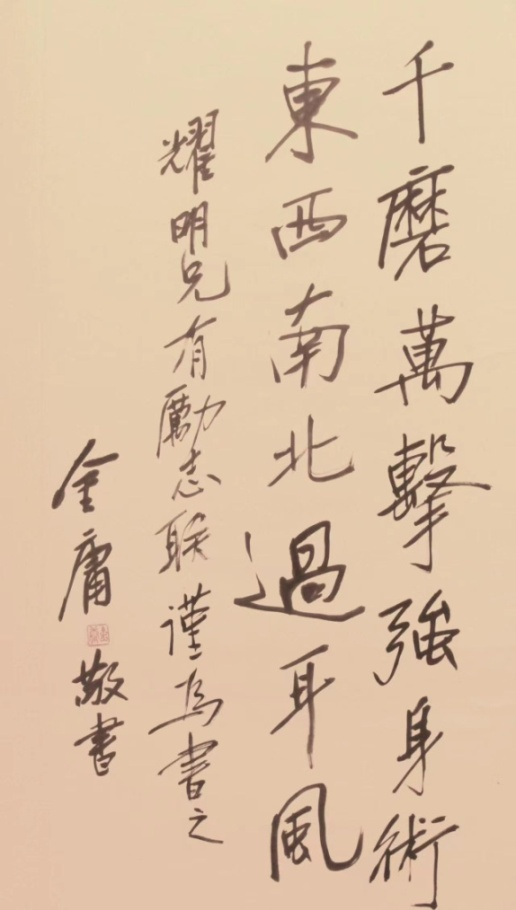 千磨萬擊強身術
東西南北過耳風
耀明兄有勵志联謹为書之
金庸
敬書